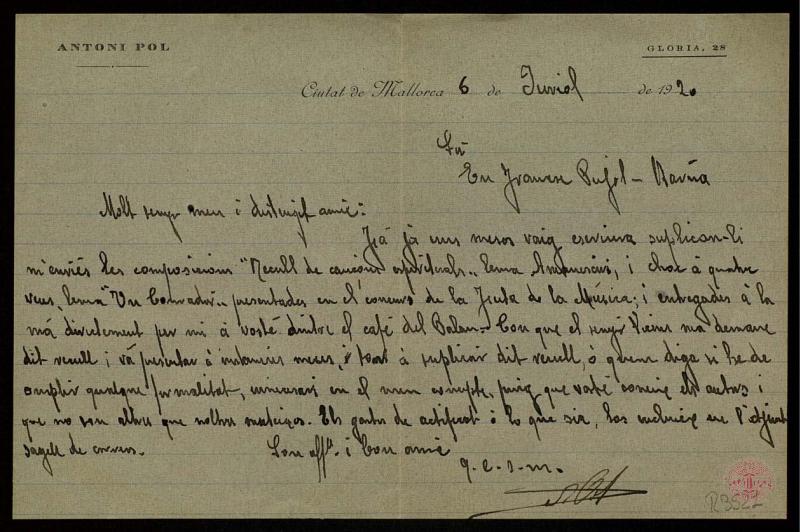 ANTONI POL
GLORIA, 28
Ciutat de Mallorca 6 de Juriol de 1920
En Francesc Pujol - Barña
Molt senyor meu i distingit amic:
Ja fá uns mesos vaig escriurer suplican-li
m'enviés les composicions "Recull de cançons espirituals" lema i chor á quatre
veus, lema "Un Conrador" presentades en el concurs de la Festa de la Música; i entregades á la
má directement per mi á vosté dintre el café del Balan- Con que el senyor ma demane
dit recull i vá presentar á instancies meues, torn á suplicar dit recull, ó quem diga si he de
omplir qualque formalitat, en el meu concepte, puig que vosté coneix els autors i
que no son altres que noltros mateixos. Els gastos de certificat ó lo que sia, los incluiex en l'adjunt
sagell de correus. Son aff. i bon amic
q. e. s. m.
R352